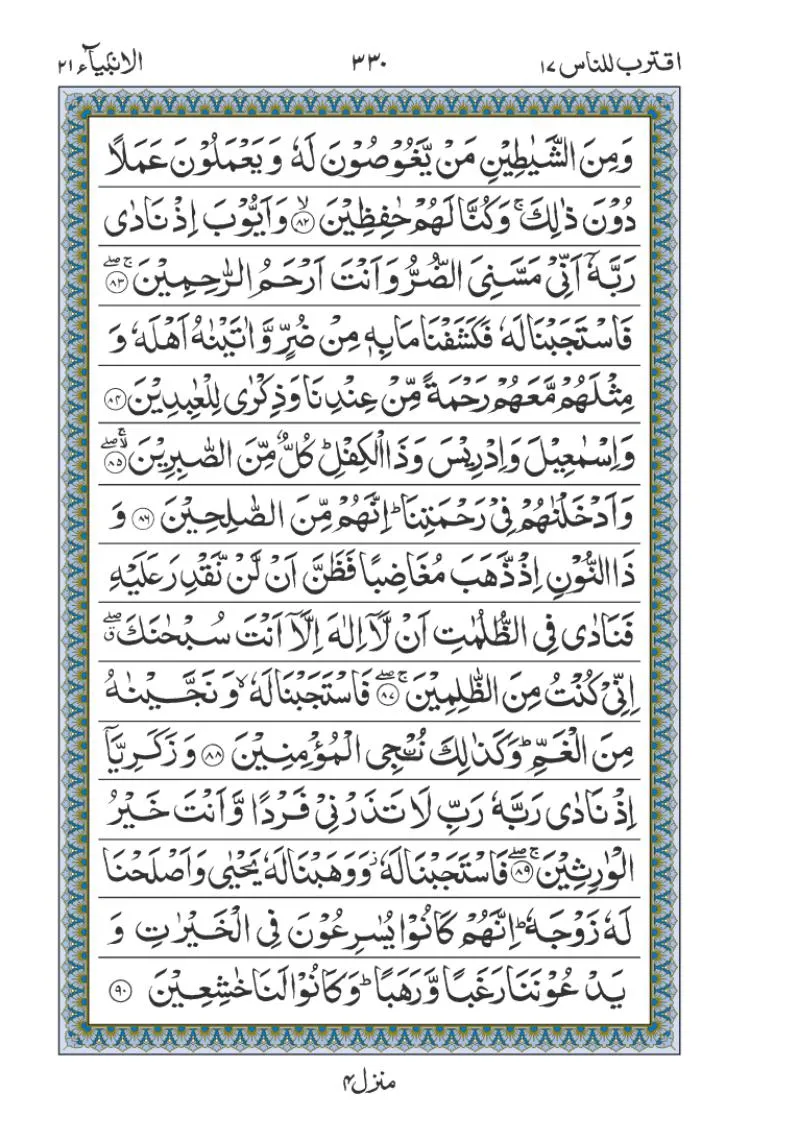 اقترب للناس ١٧ ٣٣٠ الانبیآء ٢١
وَمِنَ الشَّيٰطِيْنِ مَنْ يَّغُوْصُوْنَ لَهٗ وَيَعْمَلُوْنَ عَمَلًا
دُوْنَ ذٰلِكَ ۚ وَكُنَّا لَهُمْ حٰفِظِيْنَ ۙ﴿٨٢﴾ وَاَيُّوْبَ اِذْ نَادٰى
رَبَّهٗۤ اَنِّىْ مَسَّنِىَ الضُّرُّ وَاَنْتَ اَرْحَمُ الرّٰحِمِيْنَ ۚۖ﴿٨٣﴾
فَاسْتَجَبْنَا لَهٗ فَكَشَفْنَا مَا بِهٖ مِنْ ضُرٍّ وَّاٰتَيْنٰهُ اَهْلَهٗ وَ
مِثْلَهُمْ مَّعَهُمْ رَحْمَةً مِّنْ عِنْدِنَا وَذِكْرٰى لِلْعٰبِدِيْنَ ﴿٨٤﴾
وَاِسْمٰعِيْلَ وَاِدْرِيْسَ وَذَا الْكِفْلِ ؕ كُلٌّ مِّنَ الصّٰبِرِيْنَ ۚۖ﴿٨٥﴾
وَاَدْخَلْنٰهُمْ فِىْ رَحْمَتِنَا ؕ اِنَّهُمْ مِّنَ الصّٰلِحِيْنَ ﴿٨٦﴾ وَ
ذَا النُّوْنِ اِذْ ذَّهَبَ مُغَاضِبًا فَظَنَّ اَنْ لَّنْ نَّقْدِرَ عَلَيْهِ
فَنَادٰى فِى الظُّلُمٰتِ اَنْ لَّاۤ اِلٰهَ اِلَّاۤ اَنْتَ سُبْحٰنَكَ ۖق
اِنِّىْ كُنْتُ مِنَ الظّٰلِمِيْنَ ۚۖ﴿٨٧﴾ فَاسْتَجَبْنَا لَهٗ ۙ وَنَجَّيْنٰهُ
مِنَ الْغَمِّ ؕ وَكَذٰلِكَ نُـنْجِى الْمُؤْمِنِيْنَ ﴿٨٨﴾ وَزَكَرِيَّاۤ
اِذْ نَادٰى رَبَّهٗ رَبِّ لَا تَذَرْنِىْ فَرْدًا وَّاَنْتَ خَيْرُ
الْوٰرِثِيْنَ ۚۖ﴿٨٩﴾ فَاسْتَجَبْنَا لَهٗ ز وَوَهَبْنَا لَهٗ يَحْيٰى وَاَصْلَحْنَا
لَهٗ زَوْجَهٗ ؕ اِنَّهُمْ كَانُوْا يُسٰرِعُوْنَ فِى الْخَيْرٰتِ وَ
يَدْعُوْنَنَا رَغَبًا وَّرَهَبًا ؕ وَكَانُوْا لَنَا خٰشِعِيْنَ ﴿٩٠﴾
منزل ۴